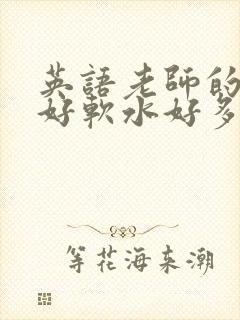 英語老師的
好軟水好多
等花海来潮